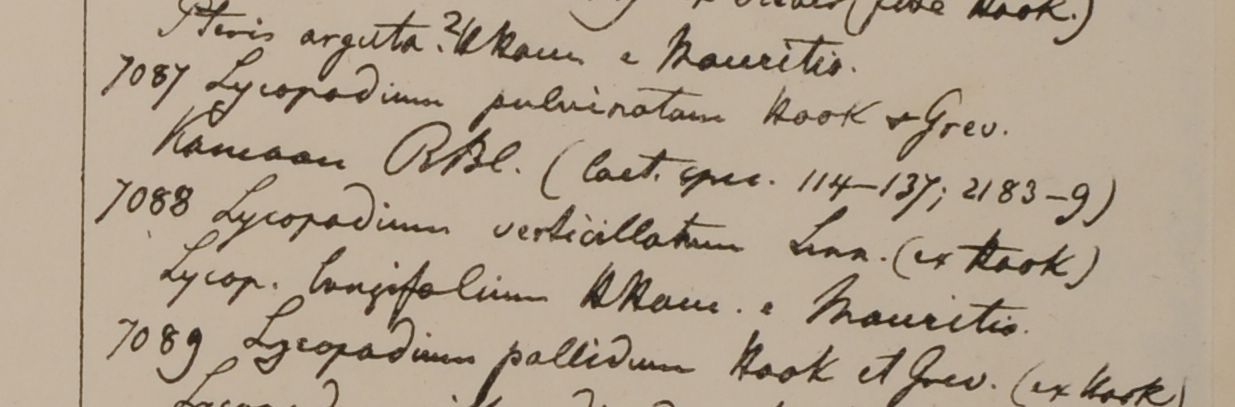 (fide Hook.)
Pteris arguta? e Mauritio.
7087 Lycopodium pulvinatum Hook & Grev.
RBl. (Caet. spec. 114–137; 2183–9)
7088 Lycopodium verticillatum Linn. (ex Hook)
Lycop. longifolium e Mauritio.
7089 Lycopodium pallidum Hook et Grev. (ex Hook)